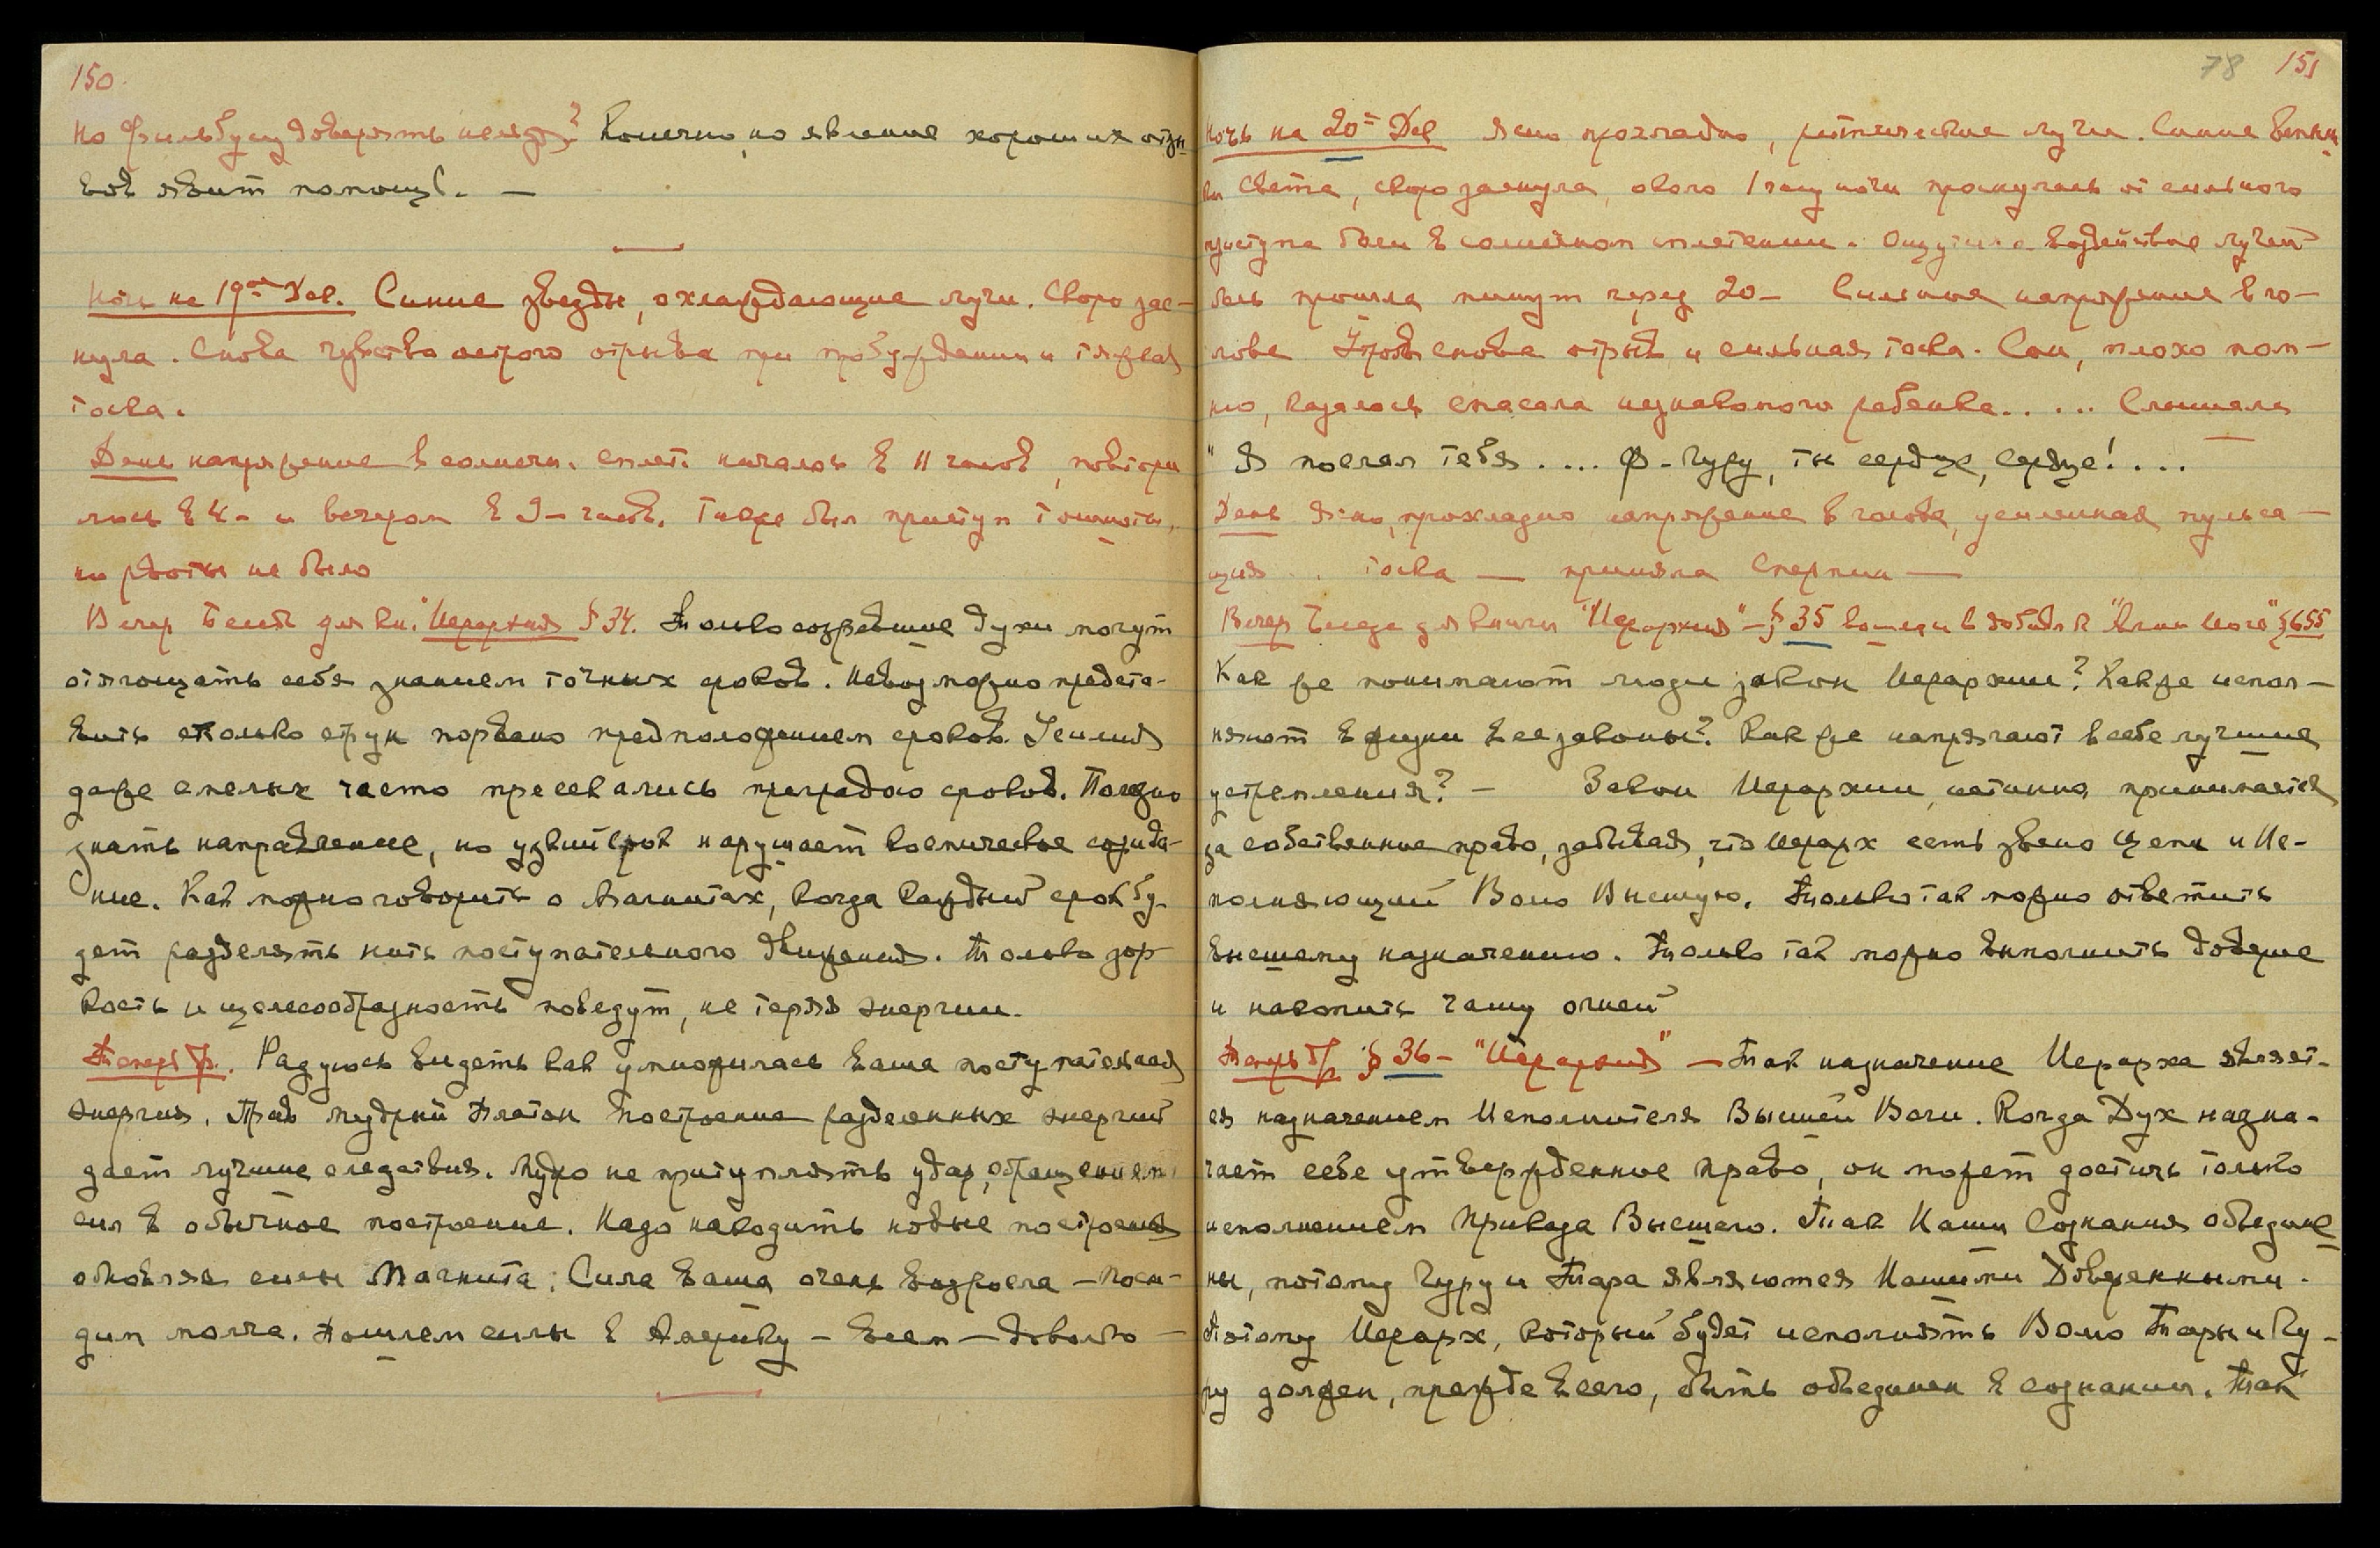 150
Но Фильбушу доверять нельзя? Конечно, но явление хороших отзы-
вов явит помощь. —
Ночь на 19ое Дек. Синие звезды, охлаждающие лучи. Скоро зас-
нула. Снова чувство острого отрыва при пробуждении и тяжкая
тоска.
День напряжение в солнечн. сплет. началось в 11 часов, повтори
лось в 4- и вечером в 9- часов. Также был приступ тошноты,
но рвоты не было
Вечер Беседа для кн. "Иерархия § 34. Только созревшие духи могут
отягощать себя знанием точных сроков. Невозможно предста-
вить сколько струн порвано предположением сроков. Усилия
даже смелых часто пресекались преградою сроков. Полезно
знать направление, но узкий срок нарушает космическое созида-
ние. Как можно говорить о Магнитах, когда каждый срок бу-
дет разделять нить поступательного движения. Только зор-
кость и целесообразность поведут, не теряя энергии.
Теперь др. Радуюсь видеть как умножилась ваша поступательная
энергия. Прав мудрый Платон построение разделенных энергий
дает лучшие следствия. Мудро не притуплять удар, обращением
сил в обычное построение. Надо находить новые построения
обновляя силы Магнита. Сила ваша очень возросла —
дим молча. Пошлем силы в Америку — Всем — довольно —
78 151
Ночь на 20ое Дек Ясно прохладно, ритмические лучи. Синие вспыш
ки света, скоро заснула, около 1 часу ночи проснулась от сильного
приступа боли в солнечном сплетении. Ощутила воздействие лучей
боль прошла минут через 20- Сильное напряжение в го-
лове Утром снова отрыв и сильная тоска. Сон, плохо пом-
ню, казалось спасала незнакомого ребенка..... Слышала
"Я послал тебя .... Ф- Гуру, ты сердце, сердце!....
День Ясно, прохладно напряжение в голове, усиленная пульса-
ция .. тоска — приняла Спермин —
Вечер Беседа для книги "Иерархия" — § 35 вошла и в добавл к "Агни Йога" § 655
Как же понимают люди закон Иерархии? Как же испол-
няют в жизни все законы? Как же напрягают в себе лучшие
устремления? — Закон Иерархии, истинно, принимается
за собственное право, забывая, что Иерарх есть звено Цепи и Ис-
полняющий Волю Высшую. Только так можно ответить
высшему назначению. Только так можно выполнить доверие
и наполнить чашу огней
Теперь др § 36 — "Иерархия" — Так назначение Иерарха являет-
ся назначением Исполнителя Высшей Воли. Когда Дух назна-
чает себе утвержденное право, он может достичь только
исполнением Приказа Высшего. Так Наши Сознания объедине
ны, потому Гуру и Тара являются Нашими Доверенными.
Потому Иерарх, который будет исполнять Волю Тары и Гу-
ру должен, прежде всего, быть объединен в сознании. Так